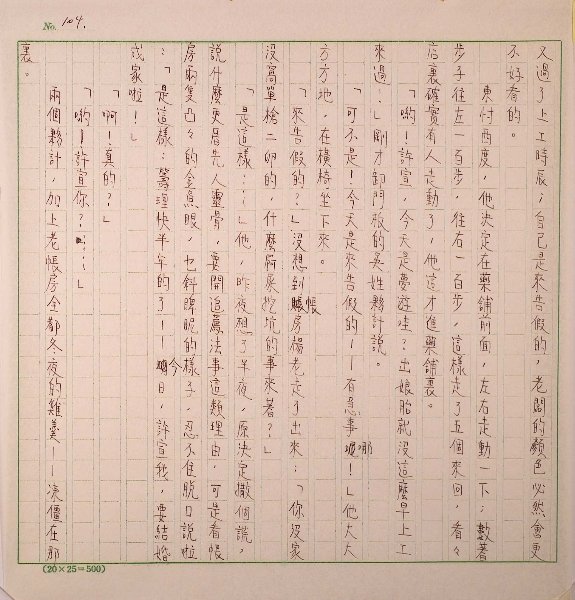 No. 104.
又過了上工時辰；自己是來告假的，老闆的顏色必然會更
不好看的。
東忖西度，他決定在藥鋪前面，左右走動一下；數著
步子往左一百步，往右一百步，這樣走了五個來回，看々
店裏確實有人走動了，他這才進藥鋪裏。
「喲！許宣，今天是夢遊哇？出娘胎就沒這麼早上工
來過：」剛才卸門板的吳姓夥計說
「可不是！今天是來告假的——有急事哪！」他大大
方方地，在橫椅坐下來。
「來告假的？」沒想到帳房楊老走了出來：「你沒家
沒窩單槍二卵的，什麼騎泵挖坑的事來著？」
「是這樣⋯⋯」他，昨夜想了半夜，原決定撒個謊，
說什麼更厝先人靈骨，要開追薦法事這類理由，可是看帳
房兩隻凸々的金魚眼，乜斜睥睨的樣子，忍不住脫口說啦
：「是這樣：籌理快半年的了——今日，許宣我，要結婚
成家啦！」
「啊！真的？」
「喲！許宣你？⋯⋯」
兩個夥計，加上老帳房全都冬夜的雞羹——凍僵在那
裏。
(20×25=500)